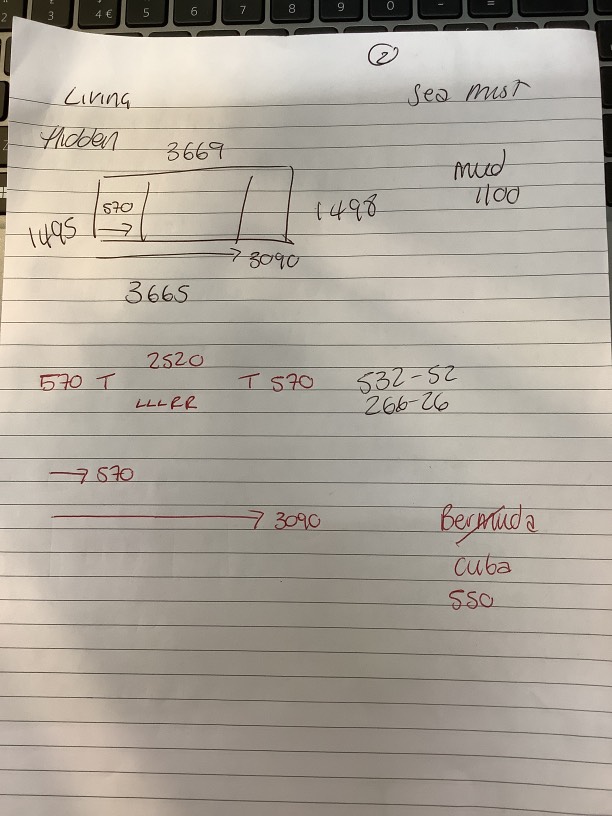 2
Living
Sea mist
Hidden
3669
mud
1100
570
1495
1498
3090
3665
2520
570 T
T 570
LLLRR
532-52
266-26
570
3090
Bermuda
Cuba
550